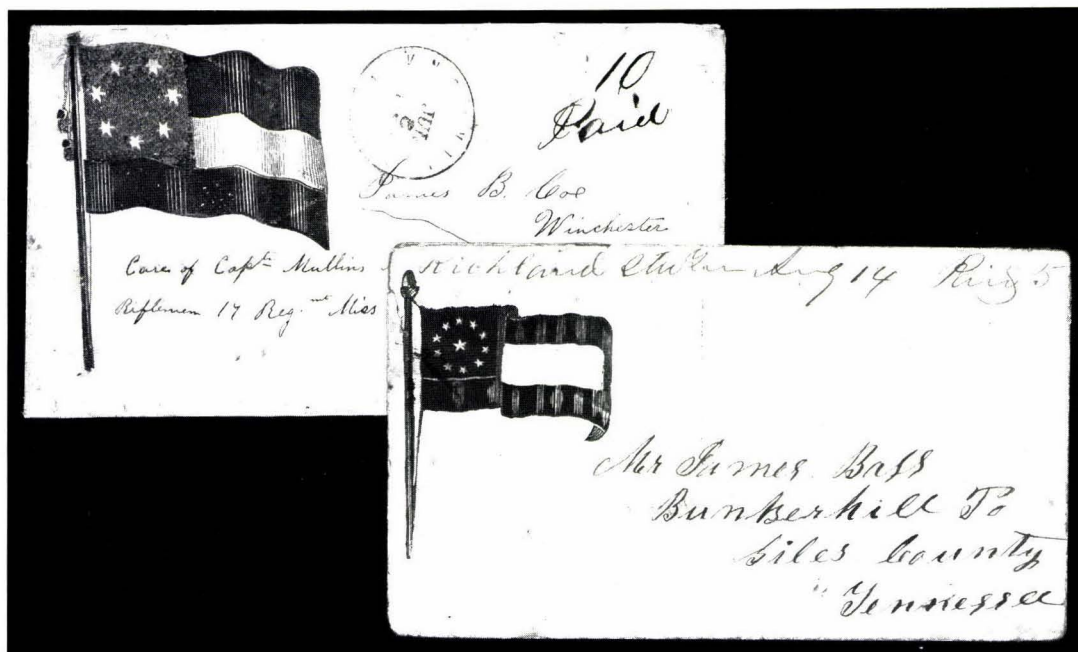 10
Paid
James B. Coe
Winchester
Care of Capt Mullins
Riflemen 17 Reg.nt Miss
Richland Aug 14 5
Mr James Bass
Bunkerhill Po
Giles County
Tennessee